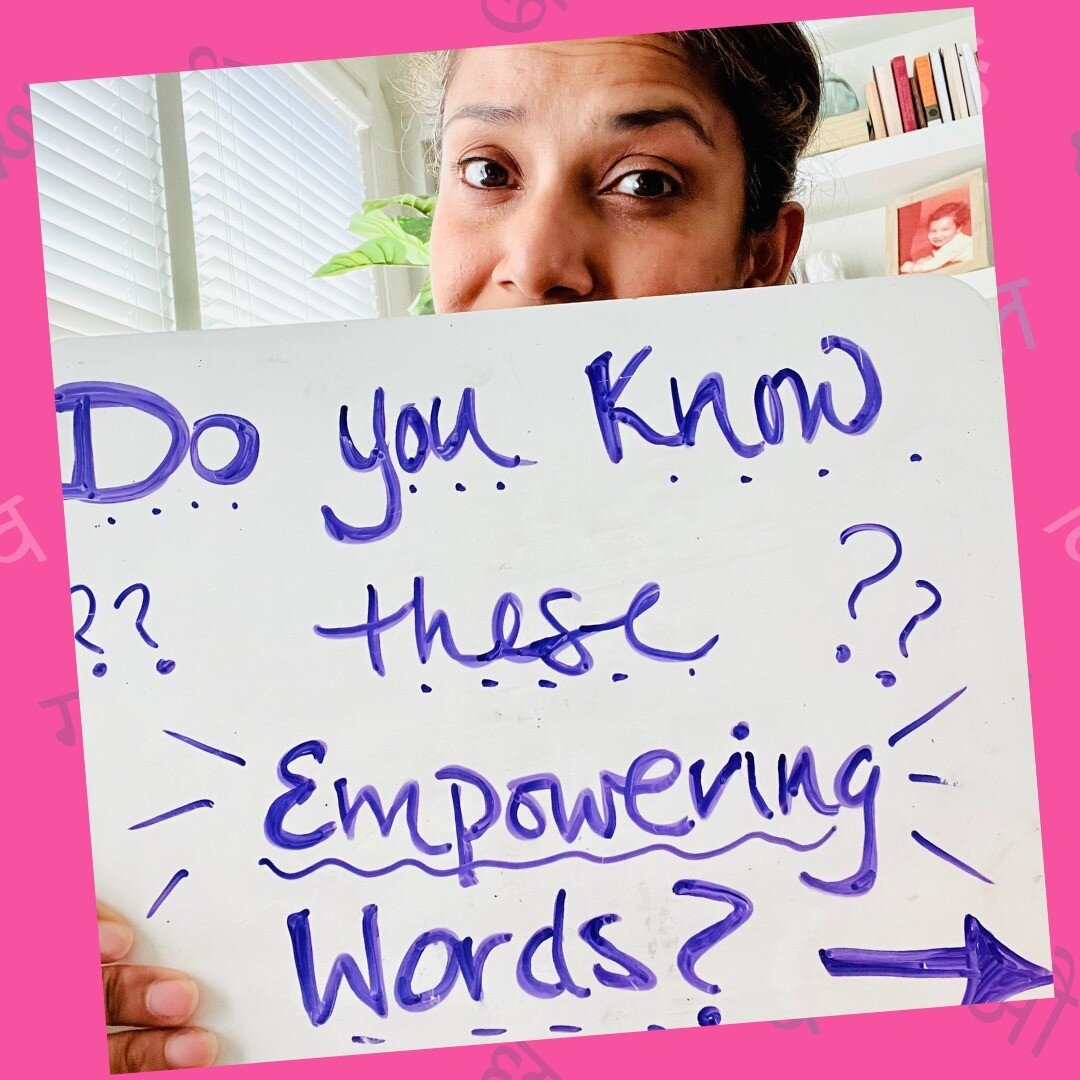 Do you Know
?? these ??
Empowering
Words?